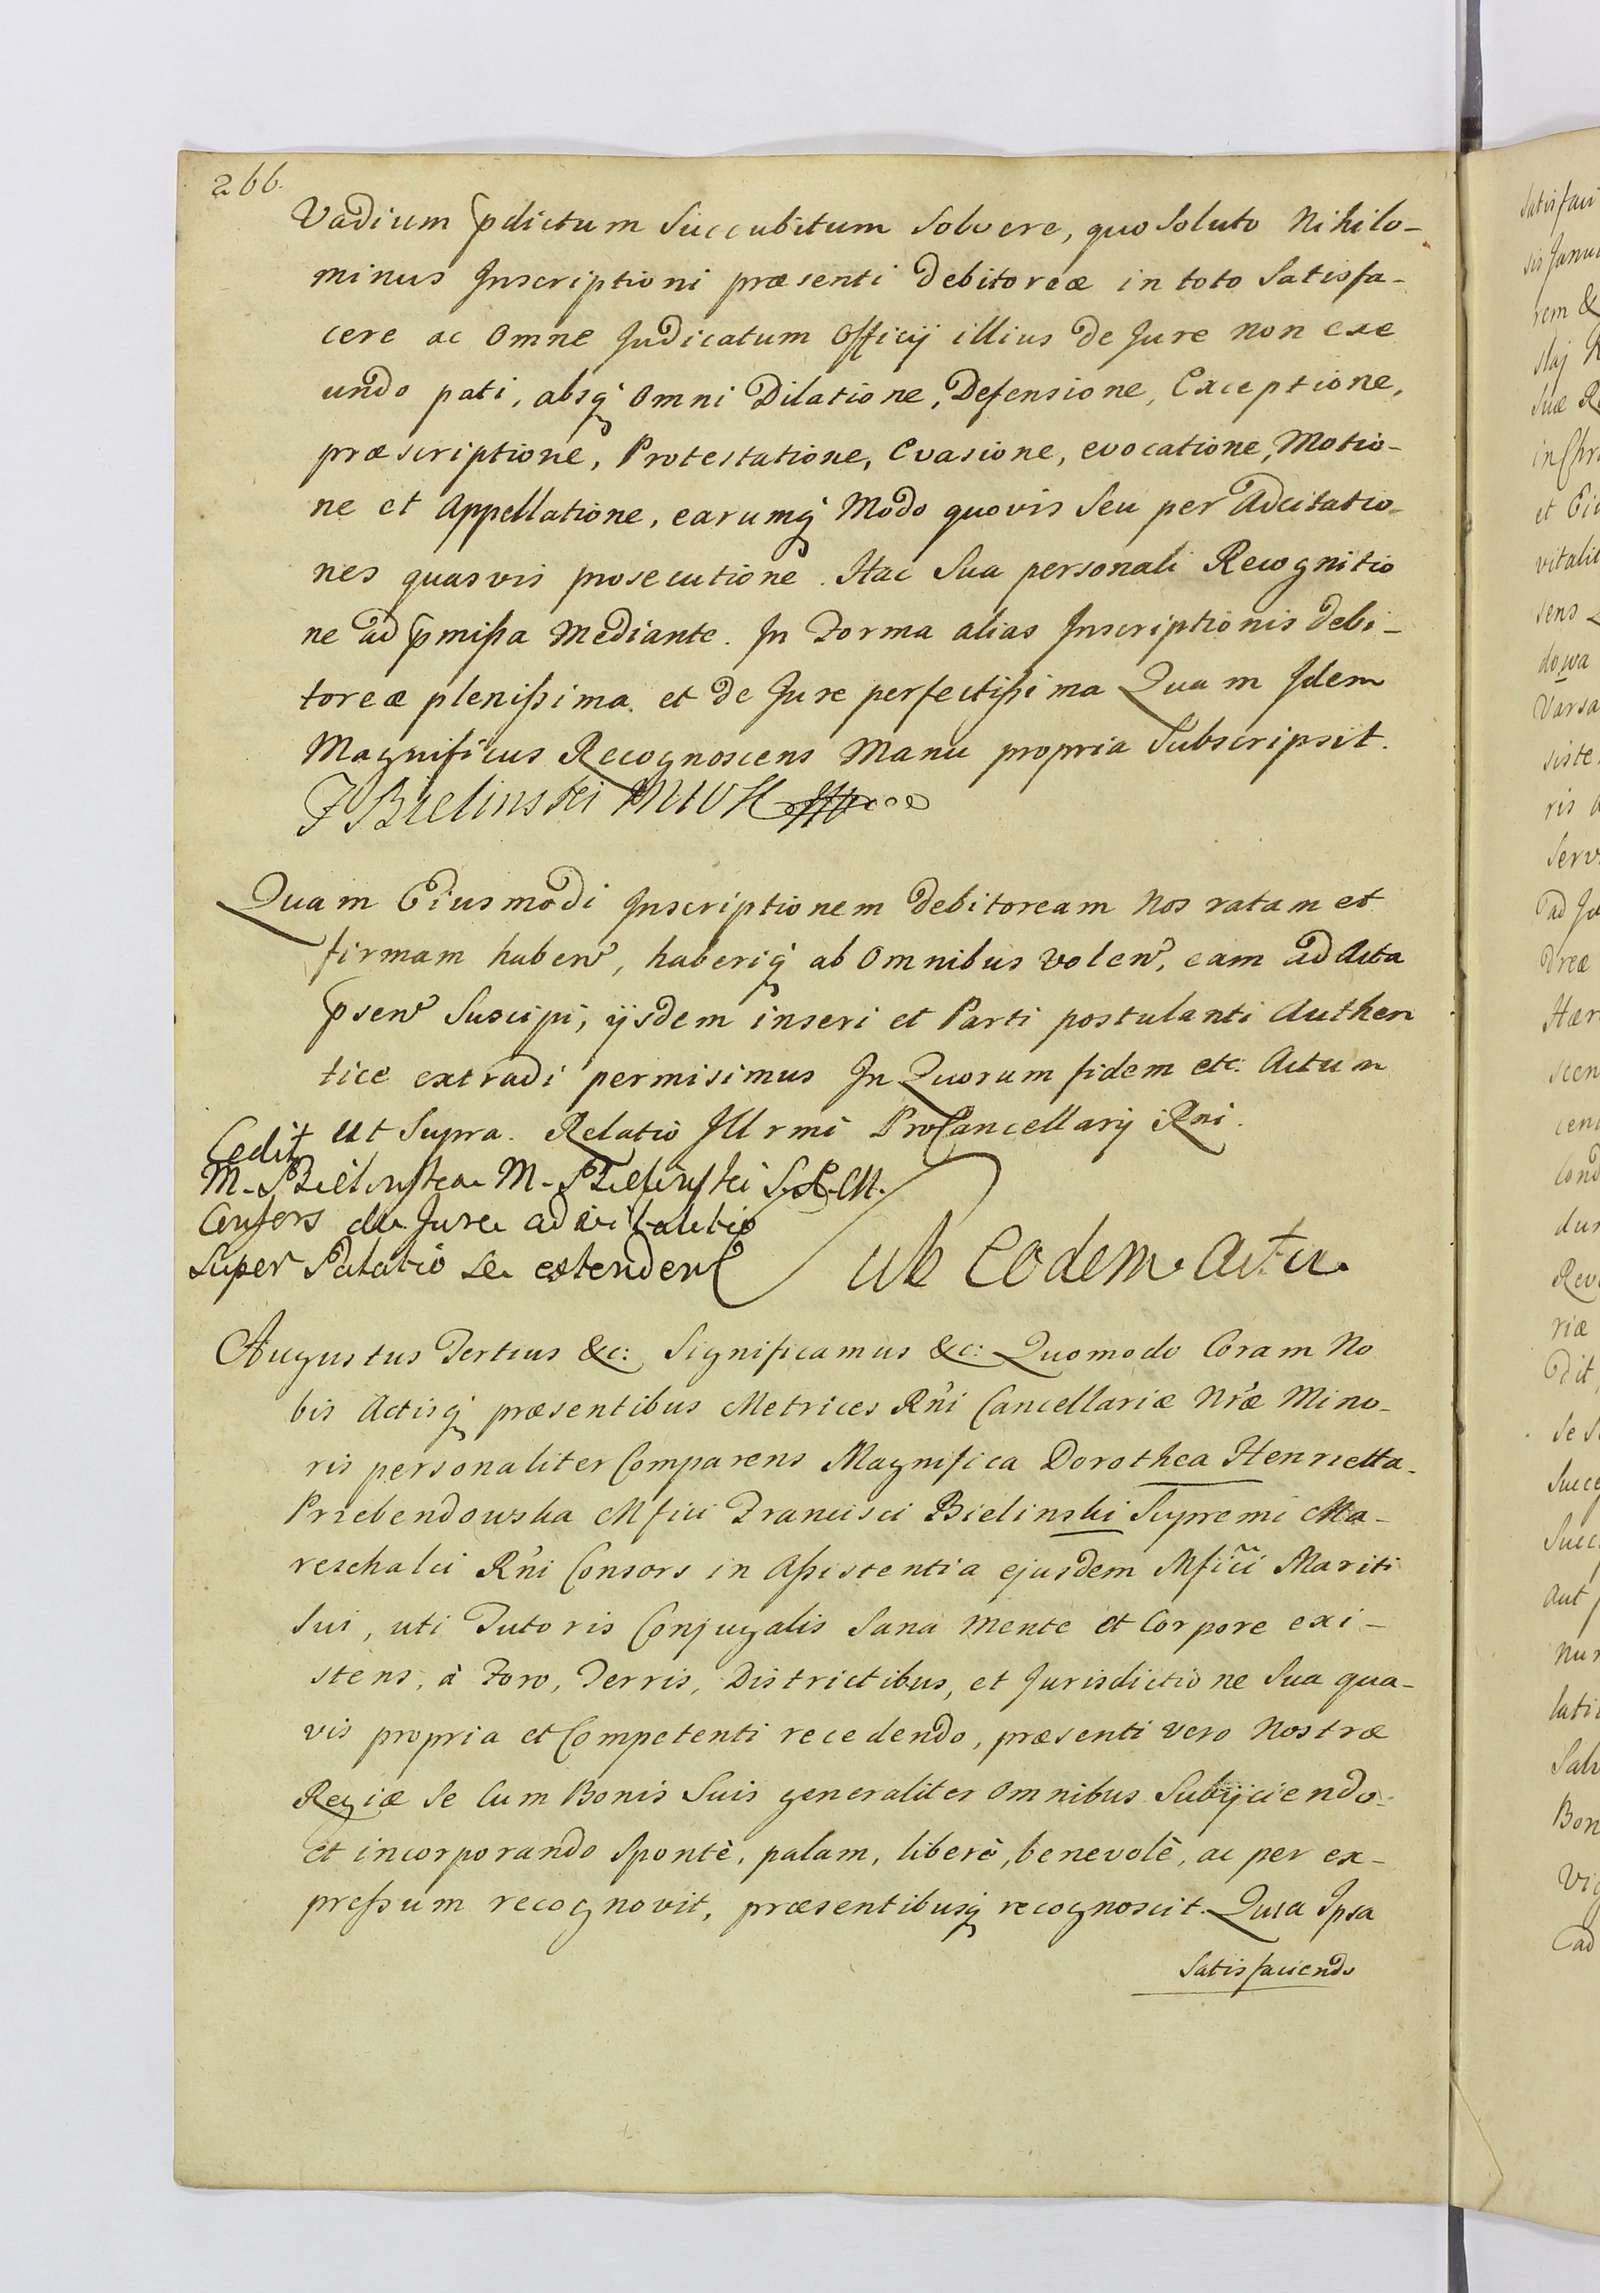 266.
Vadium pdictum Succubitum Solvere, quo Soluto Nihilo-
minus Inscriptioni præsenti Debitoreæ in toto Satisfa-
cere ac Omne Judicatum Officij illius De Jure non exe
undo pati, absq́ Omni Dilatione, Defensione, Exceptione,
præscriptione, Protestatione, Evasione, evocatione, Motio-
ne et Appellatione, earumq́ Modo quovis Seu per Adcitatio-
nes quasvis prosecutione. Hac Sua personali Recognitio
ne ad pmissa Mediante. In Forma alias Inscriptionis Debi-
toreæ plenissima et De Jure perfectissima Quam Idem
Magnificus Recognoscens Manu propria Subscripsit.
F Bielinski MWK
Quam Eiusmodi Inscriptionem Debitoream Nos ratam et
firmam haben, haberiq́ ab Omnibus Volen, eam ad Acta
psen Suscipi, ijsdem inseri et Parti postulanti Authen
tice extradi permisimus In Quorum fidem etc. Actum
Ut Supra. Relatio Illrmi ProCancellarij Rni.
Cedit
M. Bielinska M. Bielinski S.R.M.
Consors de Jure advitalitio
Super Palatio se extenden
Ub Eodem Actu.
Augustus Tertius &c: Significamus &c: Quomodo Coram No
bis Actisq́ præsentibus Metrices Rńi Cancellariæ Nræ Mino-
ris personaliter Comparens Magnifica Dorothea Henrietta
Przebendowska Mfici Francisci Bielinski Supremi Ma-
reschalci Rńi Consors in Assistentia ejusdem Mfici Mariti
Sui, uti Tutoris Conjugalis Sana Mente et Corpore exi-
stens, à Foro, Terris, Districtibus, et Jurisdictione Sua qua-
vis propria et Competenti recedendo, præsenti vero Nostræ
Regiæ Se Cum Bonis Suis generaliter Omnibus Subijciendo
et incorporando Spontè, palam, liberè, benevolè, ac per ex-
pressum recognovit, præsentibusq́ recognoscit. Quia Ipsa
Satisfaciendo